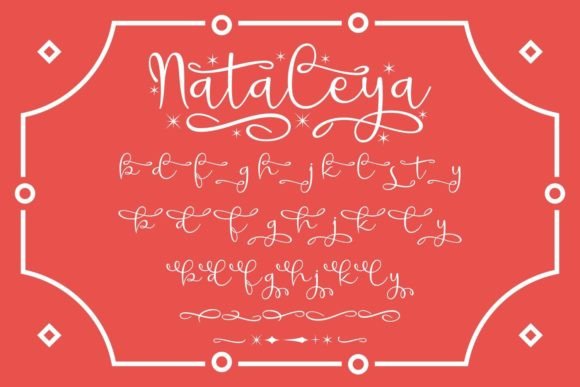 Nataleya
b d f g h j k l s t y
b d f g h j k t y
b d f g h j k l y